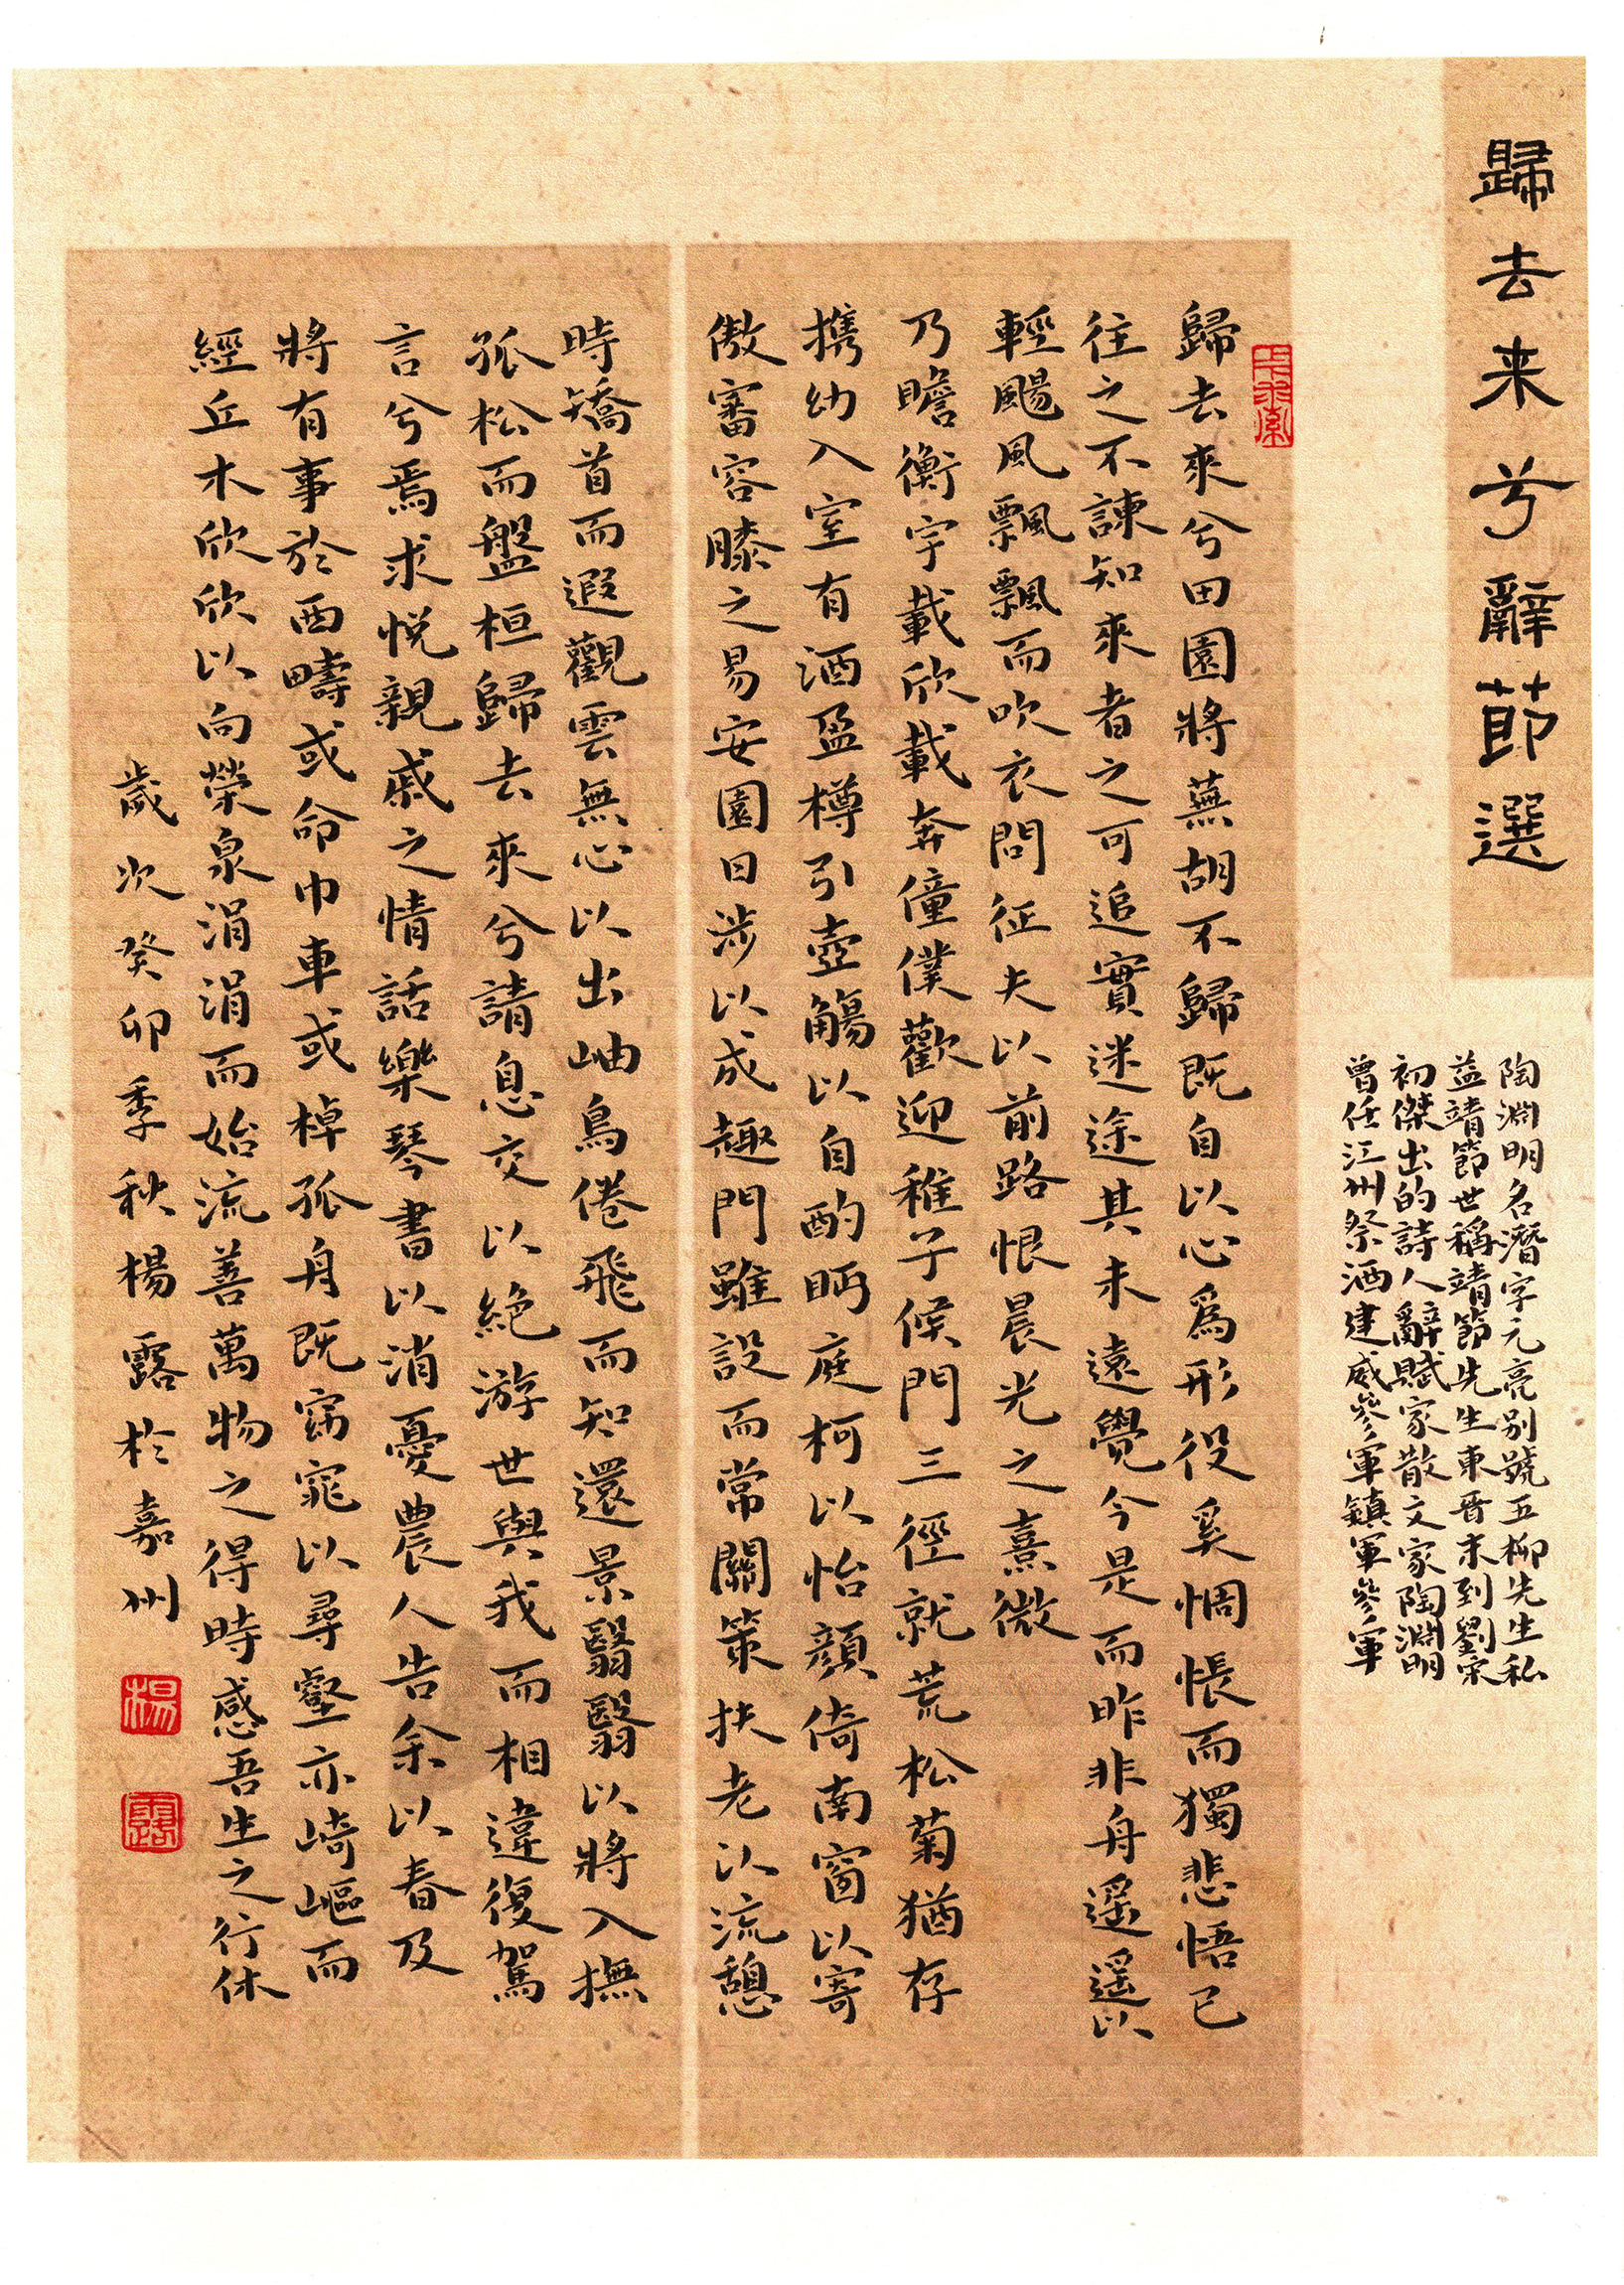 歸去来兮辭節選
陶淵明名潛字元亮别號五柳先生私
益靖節世稱靖節先生東晋末到劉宋
初傑出的詩人辭賦家散文家陶淵明
曾任江州祭酒建威參軍鎮軍參軍
歸去來兮田園將蕪胡不歸既自以心爲形役奚惆悵而獨悲悟已
往之不諫知來者之可追實迷途其未遠覺今是而昨非舟遥遥以
輕颺風飄飄而吹衣問征夫以前路恨晨光之熹微
乃瞻衡宇載欣載奔僮僕歡迎稚子候門三徑就荒松菊猶存
携幼入室有酒盈樽引壺觴以自酌眄庭柯以怡顔倚南窗以寄
傲審容膝之易安園日涉以成趣門雖設而常關策扶老以流憩
時矯首而遐觀雲無心以出岫鳥倦飛而知還景翳翳以將入撫
孤松而盤桓歸去來兮請息交以絶游世與我而相違復駕
言兮焉求悦親戚之情話樂琴書以消憂農人告余以春及
將有事於西疇或命巾車或棹孤舟既窈窕以尋壑亦崎嶇而
經丘木欣欣以向榮泉涓涓而始流善萬物之得時感吾生之行休
歲次癸卯季秋楊露於嘉州
楊
露